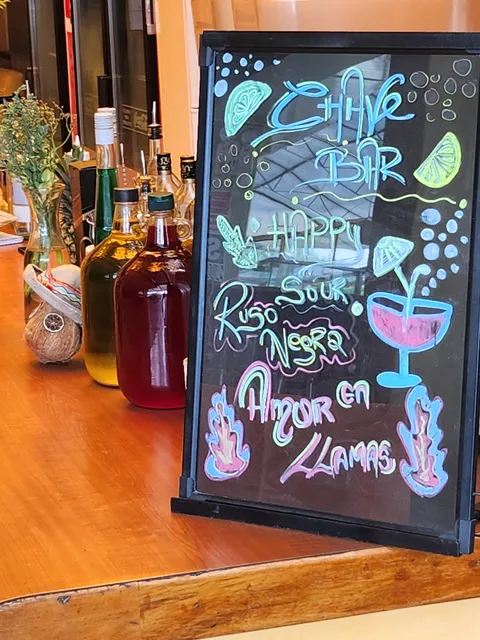 CHAVE
BAR
HAPPY
SOUR
RUSO
NEGRA
AMOR en
LLAMAS